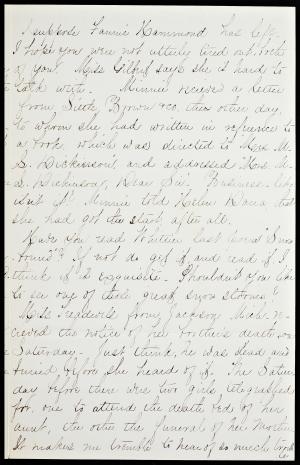 I suppose Fannie Hammond has left.
I hope you were not utterly tired out, both
of you. Miss Gilbert says she is hard to
with. Minnie recieved a letter
from Little Brown & Co. the other day,
to whom she had written in reference to
a book, which was directed to Mrs. M.
S. Dickinson, and addressed "Mrs. M.
S. Dickinson, Dear Sir." Business-like
isn't it? Minnie told Helen Dana that
she had got the start, after all.
Have you read Whittier last poem "Snow
Bound"? If not do get it and read it I
think it is exquisite. Shouldn't you like
to see one of those great snow storms?
Miss Treadwell from Jackson Mich. re-
cieved the notice of her brother's death, on
Saturday. Just think, he was dead and
buried, before she heard of it. The Satur
day before there were two girls, telegraphed
for, one to attend the death bed of her
aunt, the other the funeral of her mother
It makes me tremble to hear of so much